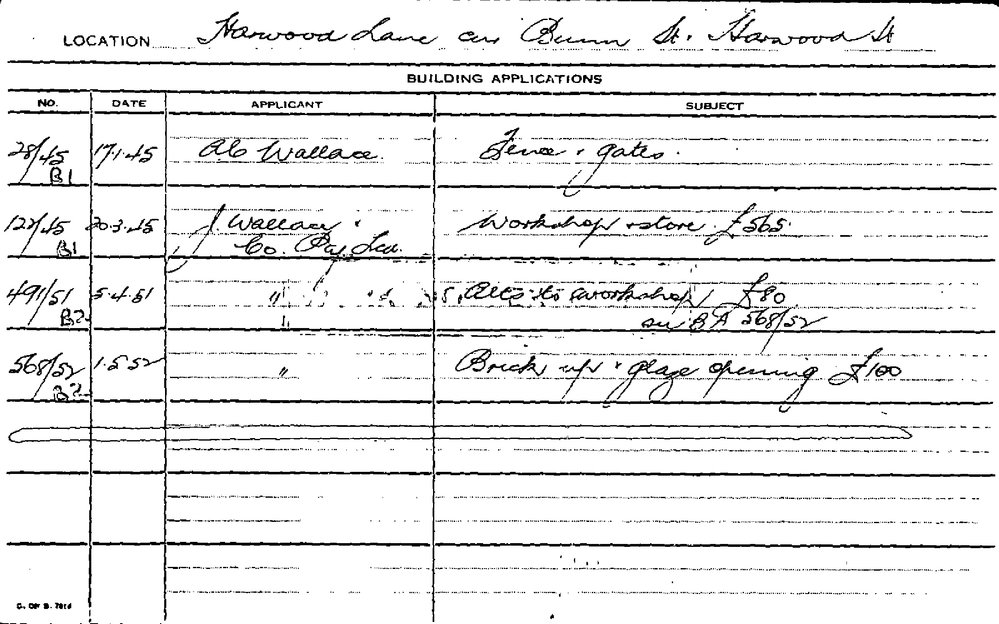 LOCATION Harwood Lane cnr Bunn St. Harwood St
BUILDING APPLICATIONS
NO. DATE APPLICANT SUBJECT
28/45 17.1.45 Wallace Fence & gates.
B1
122/45 20.3.45 J Wallace & Workshop & store. £565.
B1 Co. Pty Ltd.
491/51 5.4.51 " Alts to workshop £80
B2 " see BA 568/52
568/52 1.5.52 " Brick up & glaze opening £100
B2